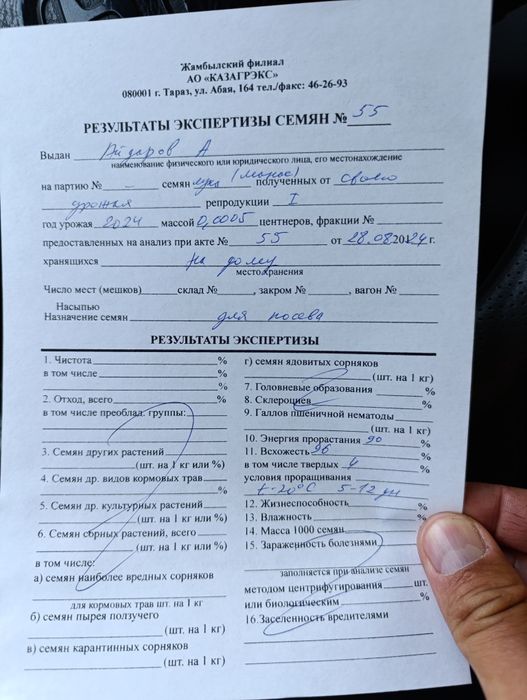 Жамбылский филиал
АО «КАЗАГРЭКС»
080001 г. Тараз, ул. Абая, 164 тел./факс: 46-26-93
РЕЗУЛЬТАТЫ ЭКСПЕРТИЗЫ СЕМЯН № 55
Выдан Айдаров А
наименование физического или юридического лица, его местонахождение
на партию № - семян лука (Манас) полученных от своего
урожая репродукции I
год урожая 2024 массой 0,0005 центнеров, фракции №
предоставленных на анализ при акте № 55 от 28.08 2024 г.
хранящихся на дому
место хранения
Число мест (мешков) склад № , закром № , вагон №
Насыпью
Назначение семян для посева
РЕЗУЛЬТАТЫ ЭКСПЕРТИЗЫ
1. Чистота %
в том числе %
2. Отход, всего %
в том числе преоблад. группы:
3. Семян других растений
(шт. на 1 кг или %)
4. Семян др. видов кормовых трав
%
5. Семян др. культурных растений
(шт. на 1 кг или %)
6. Семян сорных растений, всего
(шт. на 1 кг или %)
в том числе:
а) семян наиболее вредных сорняков
для кормовых трав шт. на 1 кг
б) семян пырея ползучего
(шт. на 1 кг)
в) семян карантинных сорняков
(шт. на 1 кг)
г) семян ядовитых сорняков
(шт. на 1 кг)
7. Головневые образования %
8. Склероциев %
9. Галлов пшеничной нематоды
(шт. на 1 кг)
10. Энергия прорастания 90 %
11. Всхожесть 96 %
в том числе твердых 4 %
условия проращивания
t-20°С 5-12 дн
12. Жизнеспособность %
13. Влажность %
14. Масса 1000 семян
15. Зараженность болезнями
заполняется при анализе семян
методом центрифугирования шт.
или биологическим %
16. Заселенность вредителями